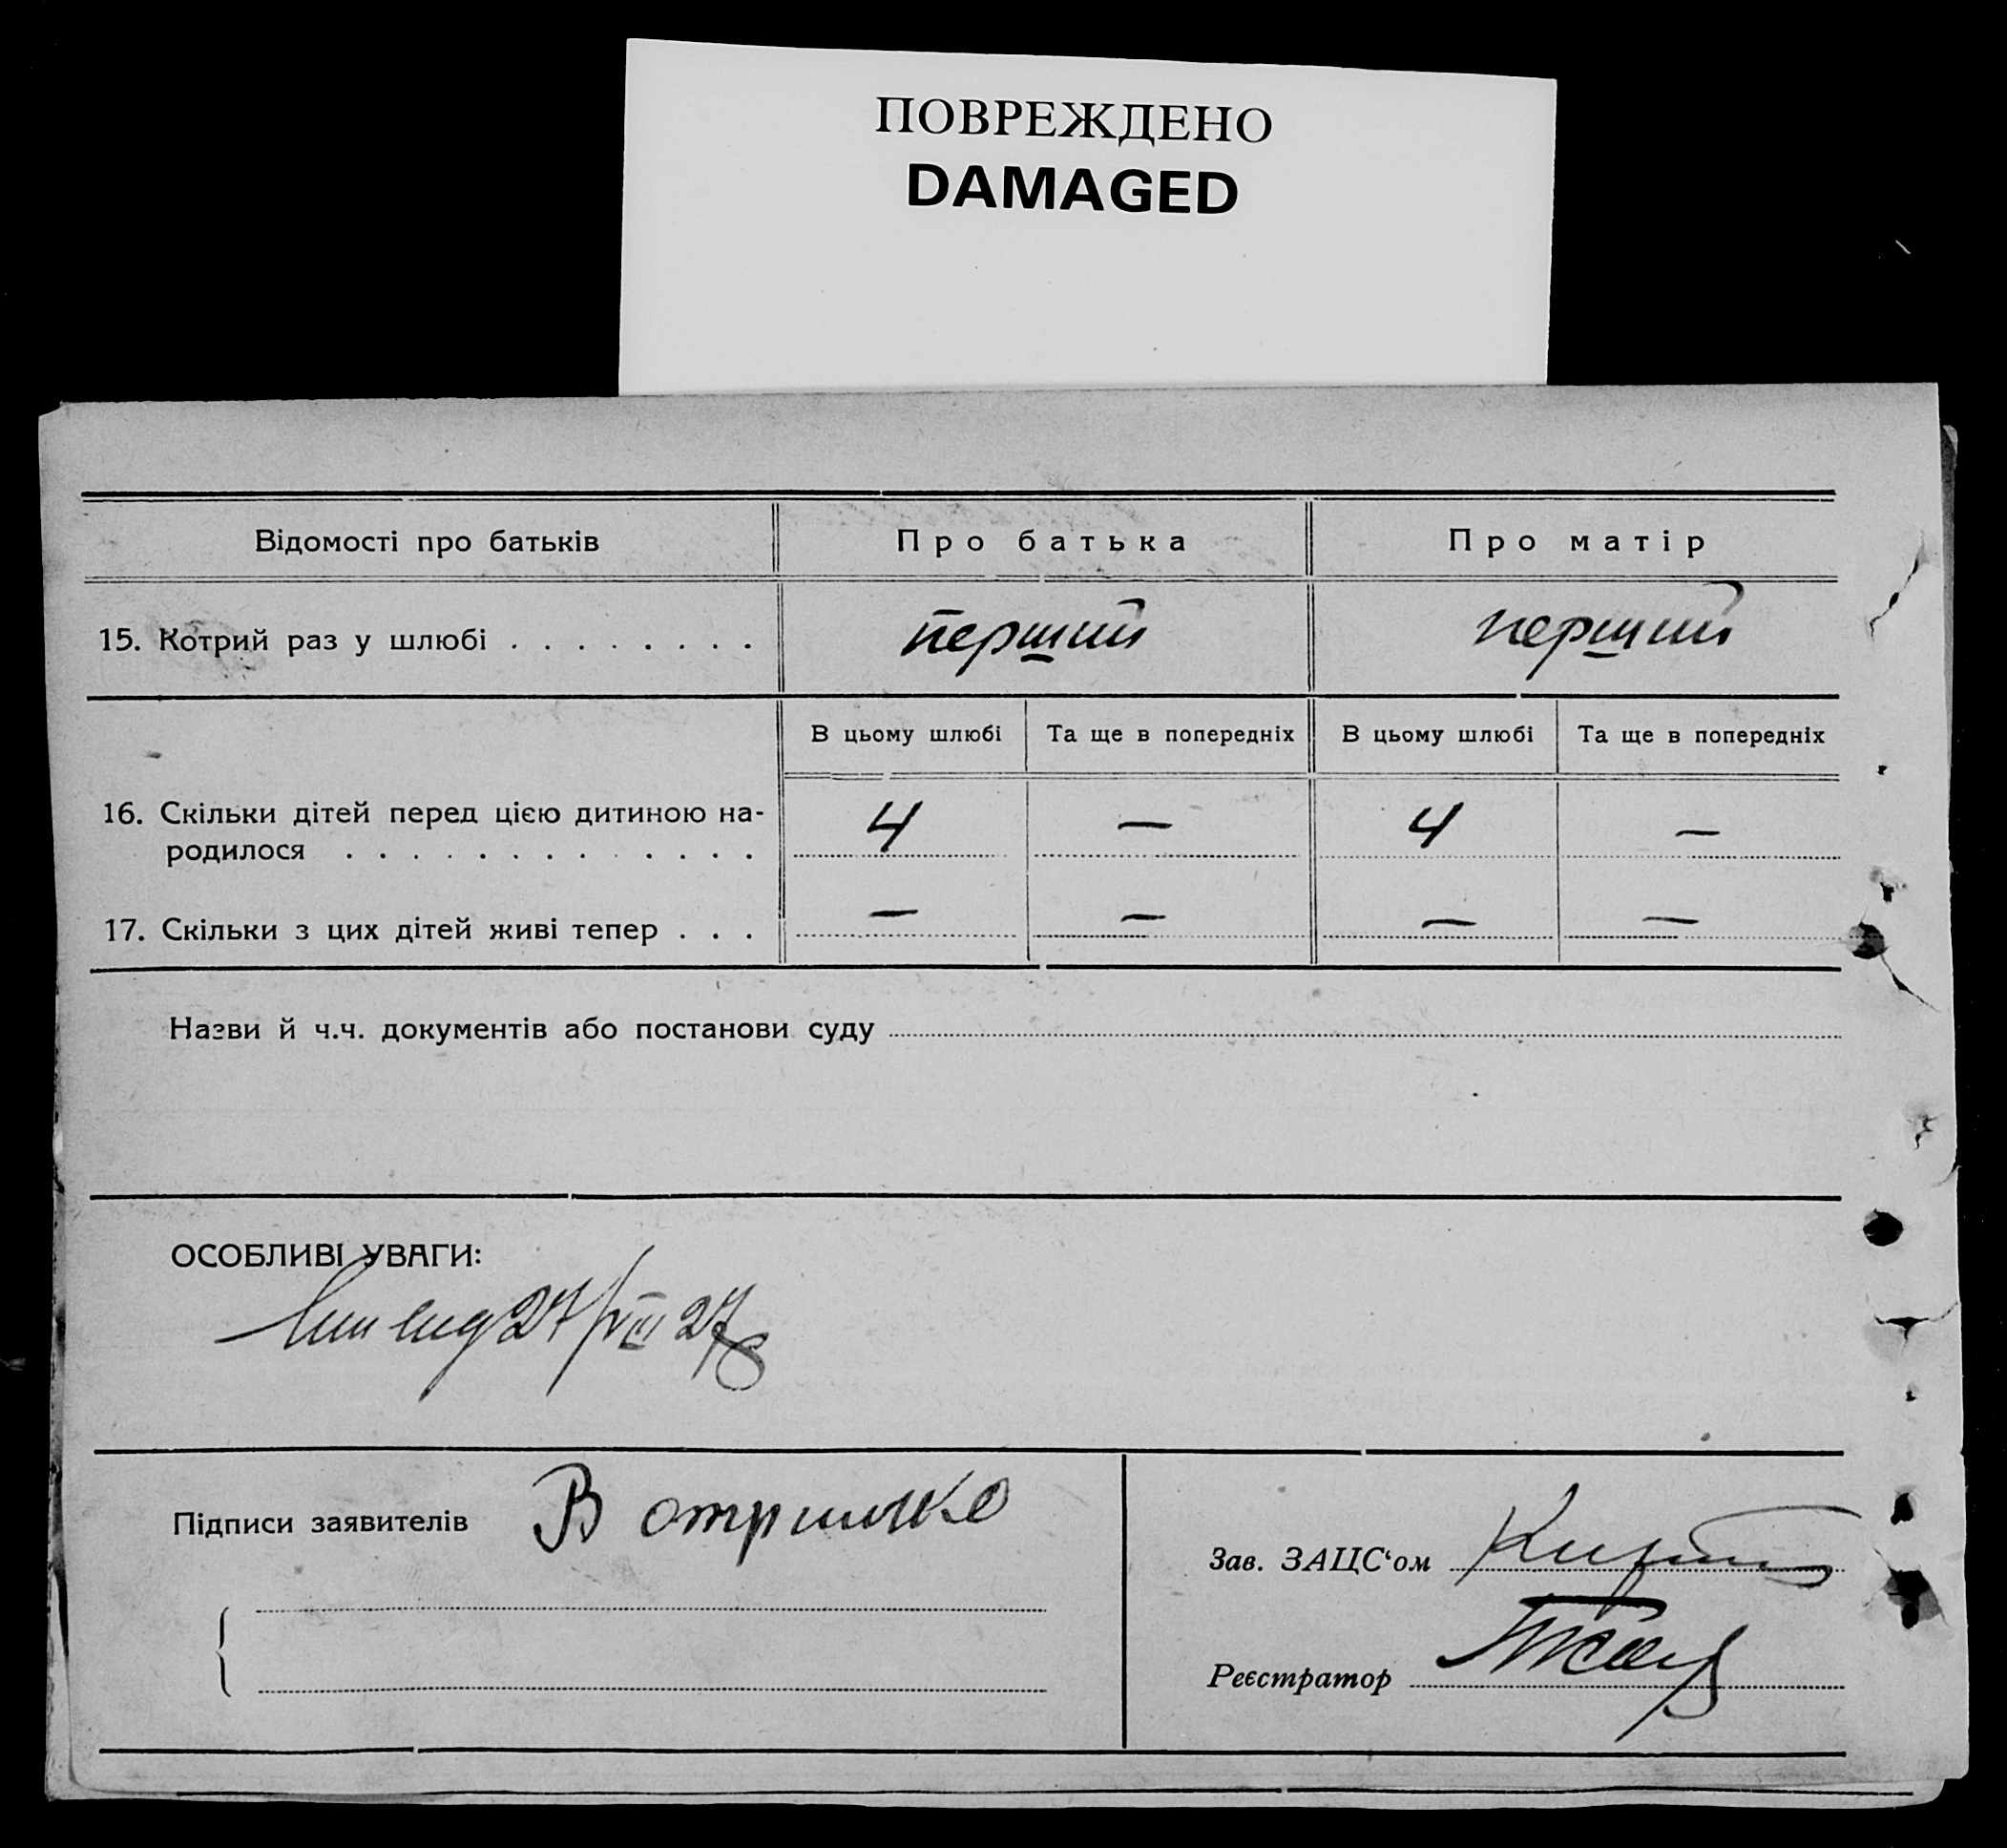 ПОВРЕЖДЕНО
DAMAGED
Відомості про батьків
Про батька
Про матір
15. Котрий раз у шлюбі . . . . . . . .
перший
перший
В цьому шлюбі
Та ще в попередніх
В цьому шлюбі
Та ще в попередніх
16. Скільки дітей перед цією дитиною на-
родилося . . . . . . . . . . . . .
4
—
4
—
17. Скільки з цих дітей живі тепер . . .
—
—
—
—
Назви й ч.ч. документів або постанови суду
ОСОБЛИВІ УВАГИ:
27/VIII 27
Підписи заявителів В
Зав. ЗАЦС‘ом
Реєстратор